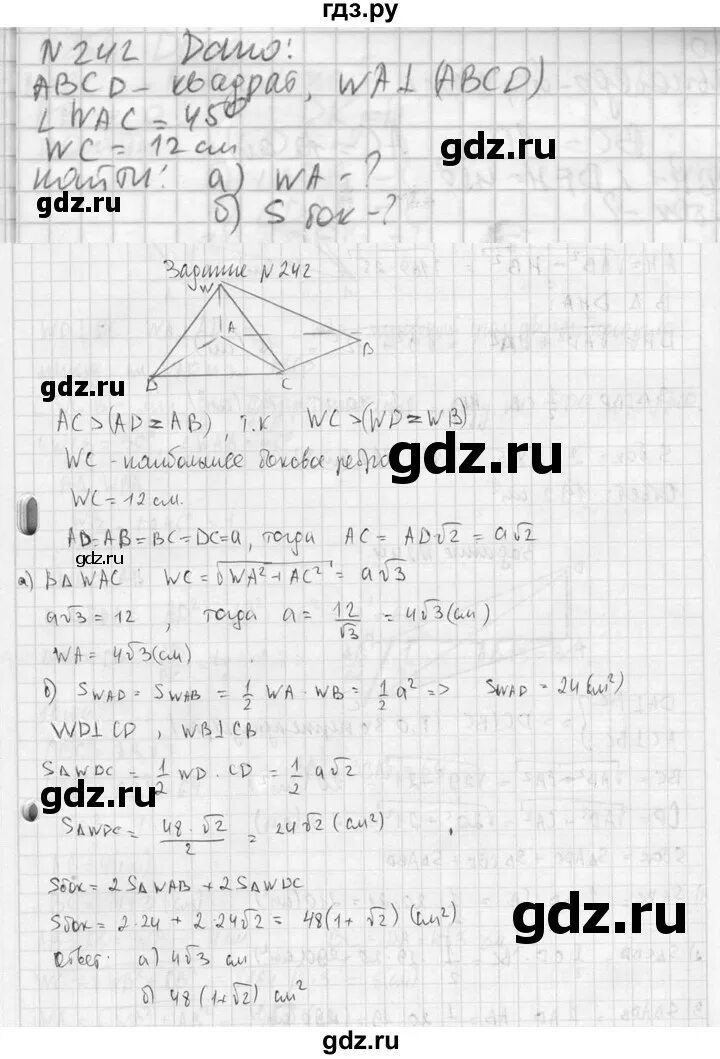 гдз.ру
N 242 Дано:
ABCD - квадрат, WA⊥(ABCD)
∠WAC = 45°
WC = 12 см
gdz.ru
найти: а) WA - ?
gdz.ru
б) S бок - ?
Задание N 242
W
A
B
D
C
gdz.ru
AC > (AD = AB), т.к WC > (WD = WB)
gdz.ru
WC - наибольшее боковое ребро
WC = 12 см.
AD=AB=BC=DC=a, тогда AC = AD√2 = a√2
gdz.ru
а) В Δ WAC : WC = √WA²+AC² = a√3
a√3 = 12, тогда a = 12/√3 = 4√3(см)
WA = 4√3(см)
б) S WAD = S WAB = 1/2 WA · WB = 1/2 a² => S WAD = 24(см²)
WD⊥CD, WB⊥CB
SΔWDC = 1/2 WD · CD = 1/2 a√2
SΔWDC = 48·√2/2 = 24√2 (см²)
Sбок = 2SΔWAB + 2SΔWDC
Sбок = 2·24 + 2·24√2 = 48(1+√2) (см²)
gdz.ru
ответ: а) 4√3 см
gdz.ru
б) 48(1+√2) см²
gdz.ru